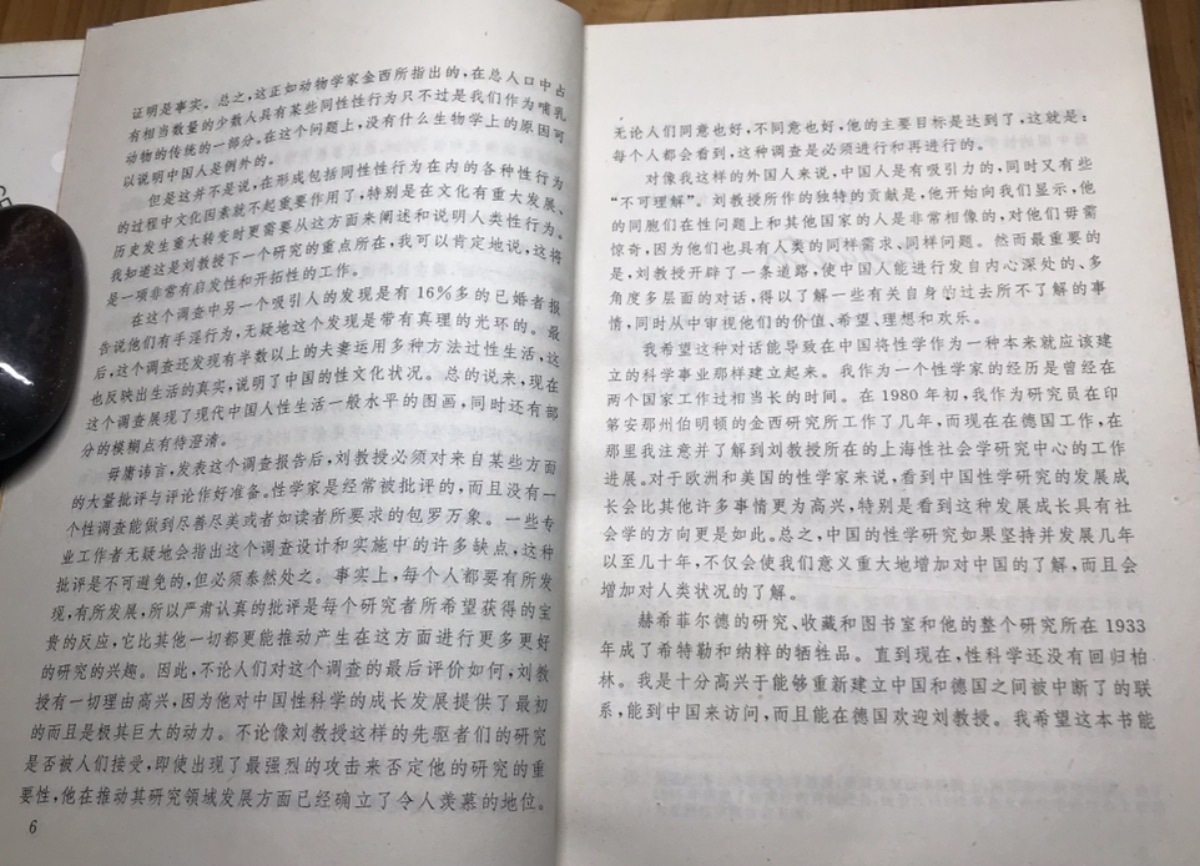 证明是事实。总之,这正如动物学家金西所指出的,在总人口中占
有相当数量的少数人具有某些同性性行为只不过是我们作为哺乳
动物的传统的一部分。在这个问题上,没有什么生物学上的原因可
以说明中国人是例外的。
但是这并不是说,在形成包括同性性行为在内的各种性行为
的过程中文化因素就不起重要作用了,特别是在文化有重大发展、
历史发生重大转变时更需要从这方面来阐述和说明人类性行为。
我知道这是刘教授下一个研究的重点所在,我可以肯定地说,这将
是一项非常有启发性和开拓性的工作。
在这个调查中另一个吸引人的发现是有16%多的已婚者报
告说他们有手淫行为,无疑地这个发现是带有真理的光环的。最
后,这个调查还发现有半数以上的夫妻运用多种方法过性生活,这
也反映出生活的真实,说明了中国的性文化状况。总的说来,现在
这个调查展现了现代中国人性生活一般水平的图画,同时还有部
分的模糊点有待澄清。
毋庸讳言,发表这个调查报告后,刘教授必须对来自某些方面
的大量批评与评论作好准备。性学家是经常被批评的,而且没有一
个性调查能做到尽善尽美或者如读者所要求的包罗万象。一些专
业工作者无疑地会指出这个调查设计和实施中的许多缺点,这种
批评是不可避免的,但必须泰然处之。事实上,每个人都要有所发
现,有所发展,所以严肃认真的批评是每个研究者所希望获得的宝
贵的反应,它比其他一切都更能推动产生在这方面进行更多更好
的研究的兴趣。因此,不论人们对这个调查的最后评价如何,刘教
授有一切理由高兴,因为他对中国性科学的成长发展提供了最初
的而且是极其巨大的动力。不论像刘教授这样的先驱者们的研究
是否被人们接受,即使出现了最强烈的攻击来否定他的研究的重
要性,他在推动其研究领域发展方面已经确立了令人羡慕的地位。
6
无论人们同意也好,不同意也好,他的主要目标是达到了,这就是:
每个人都会看到,这种调查是必须进行和再进行的。
对像我这样的外国人来说,中国人是有吸引力的,同时又有些
“不可理解”。刘教授所作的独特的贡献是,他开始向我们显示,他
的同胞们在性问题上和其他国家的人是非常相像的,对他们毋需
惊奇,因为他们也具有人类的同样需求、同样问题。然而最重要的
是,刘教授开辟了一条道路,使中国人能进行发自内心深处的、多
角度多层面的对话,得以了解一些有关自身的过去所不了解的事
情,同时从中审视他们的价值、希望、理想和欢乐。
我希望这种对话能导致在中国将性学作为一种本来就应该建
立的科学事业那样建立起来。我作为一个性学家的经历是曾经在
两个国家工作过相当长的时间。在1980年初,我作为研究员在印
第安那州伯明顿的金西研究所工作了几年,而现在在德国工作,在
那里我注意并了解到刘教授所在的上海性社会学研究中心的工作
进展。对于欧洲和美国的性学家来说,看到中国性学研究的发展成
长会比其他许多事情更为高兴,特别是看到这种发展成长具有社
会学的方向更是如此。总之,中国的性学研究如果坚持并发展几年
以至几十年,不仅会使我们意义重大地增加对中国的了解,而且会
增加对人类状况的了解。
赫希菲尔德的研究、收藏和图书室和他的整个研究所在1933
年成了希特勒和纳粹的牺牲品。直到现在,性科学还没有回归柏
林。我是十分高兴于能够重新建立中国和德国之间被中断了的联
系,能到中国来访问,而且能在德国欢迎刘教授。我希望这本书能